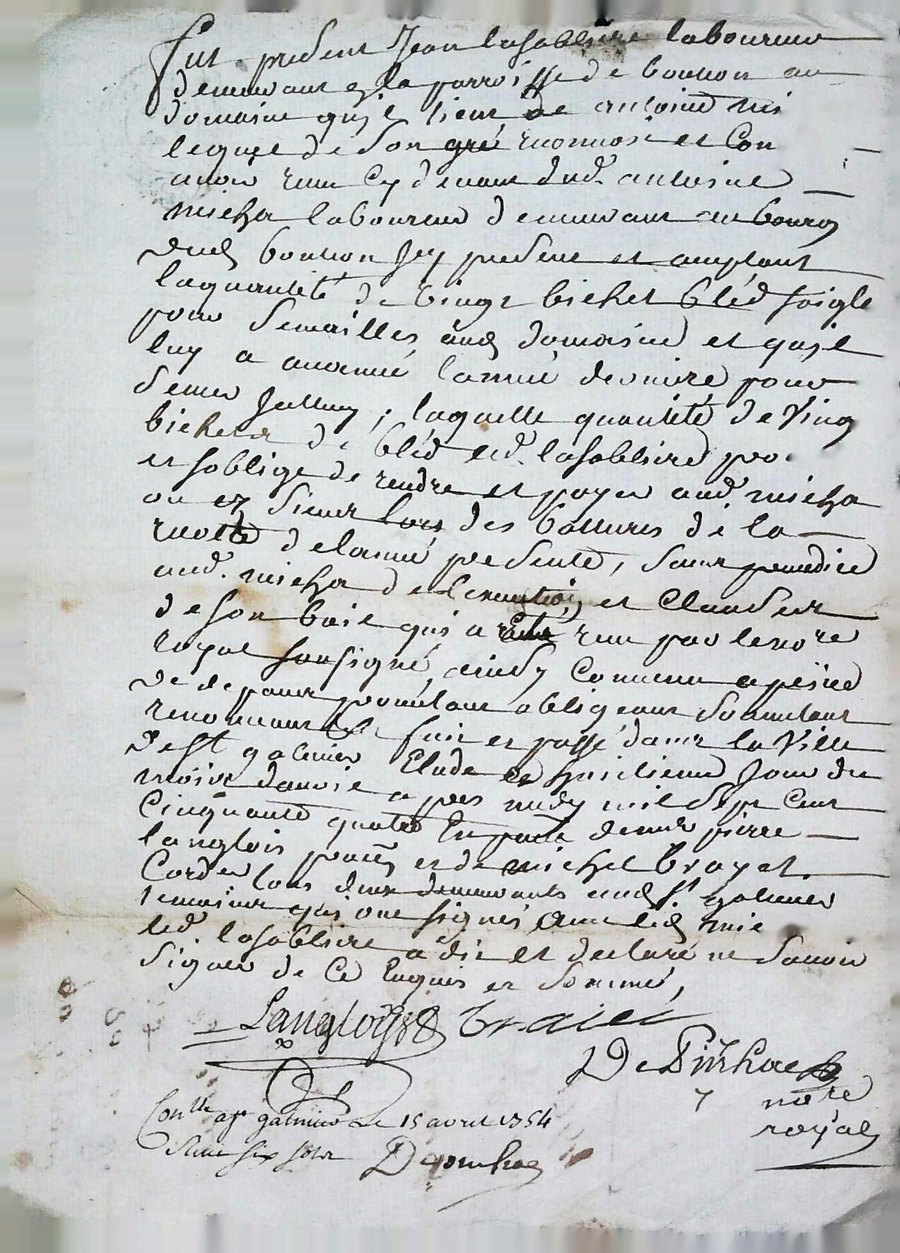 fut présent Jean lasabliere laboureur
demeurant en la parroisse de bonson au
domaine qu'il tient de antoine mi
lequel de son gré reconnoist et Con
avoir reçeu Cy devant dud. antoine
micha laboureur demeurant au bourg
dud bonson Icy présent et acceptant
la quantité de vingt bichet bléd soigle
pour semailles aud domaine et qu'il
luy a avancé l'année derniere pour
semer Iceluy ; laquelle quantité de Ving
bichets de bléd led. lasabliere pro
et soblige de rendre et payer aud. micha
ou es siens lors des battures de la
recolte de lannée présente, sans préjudice
aud. micha de et Clauses
de son baie qui a esté receu par le no.re
royal soussigné, ainsy Convenu a peine
de dépens promettant obligeant soumettant
renonceant & fait et passé dans la Ville
de st galmier Etude le huitieme Jour du
mois davril apres midy mil sept Cent
Cinquante quatre En présence de me pierre
langlois et de michel brayet
Cordier tous deux demeurants aud st galmier
temoins qui ont signés avec led mic
led lasabliere a dit et declaré ne savoir
signer de Ce Enquis et sommé,
Langlois
not.re
royal
Con.lle a st galmier Le 15 avril 1754
six sols